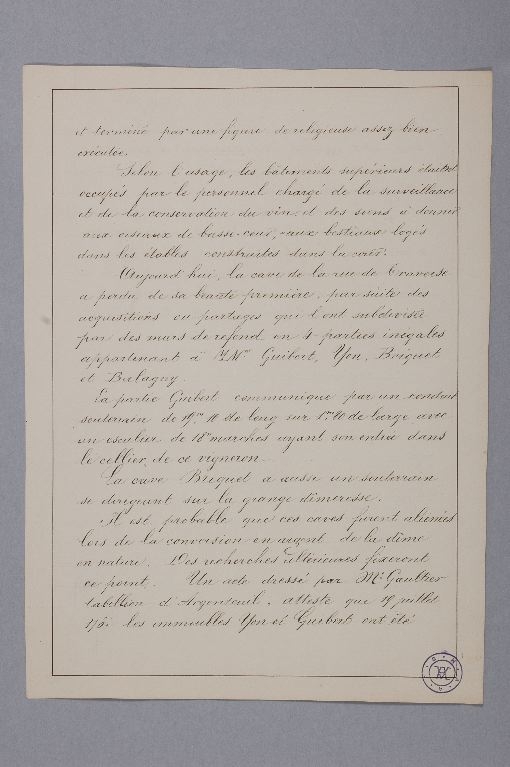 et terminé par une figure de religieuse assez bien
exécutée.
Selon l'usage, les bâtiments supérieurs étaient
occupés par le personnel chargé de la surveillance
et de la conservation du vin et des soins à donner
aux oiseaux de basse-cour, aux bestiaux logés
dans les étables construites dans la cour.
Aujourd'hui, la cave de la rue de Traverse
a perdu de sa beauté première, par suite des
acquisitions ou partages qui l'ont subdivisée
par des murs de refend en 4 parties inégales
appartenant à MM. Guibert, Yon, Briquet
et Balagny.
La partie Guibert communique par un conduit
souterrain de 19m 10 de long sur 1m 80 de large avec
un escalier de 18 marches ayant son entrée dans
le cellier de ce vigneron
La cave Briquet a aussi un souterrain
se dirigeant sur la grange dîmeresse.
Il est probable que ces caves furent aliénées
lors de la conversion en argent de la dîme
en nature. Des recherches ultérieures fixeront
ce point. Un acte dressé par Me Gaultier
tabellion d'Argenteuil, atteste que 19 juillet
les immeubles Yon et Guibert ont été